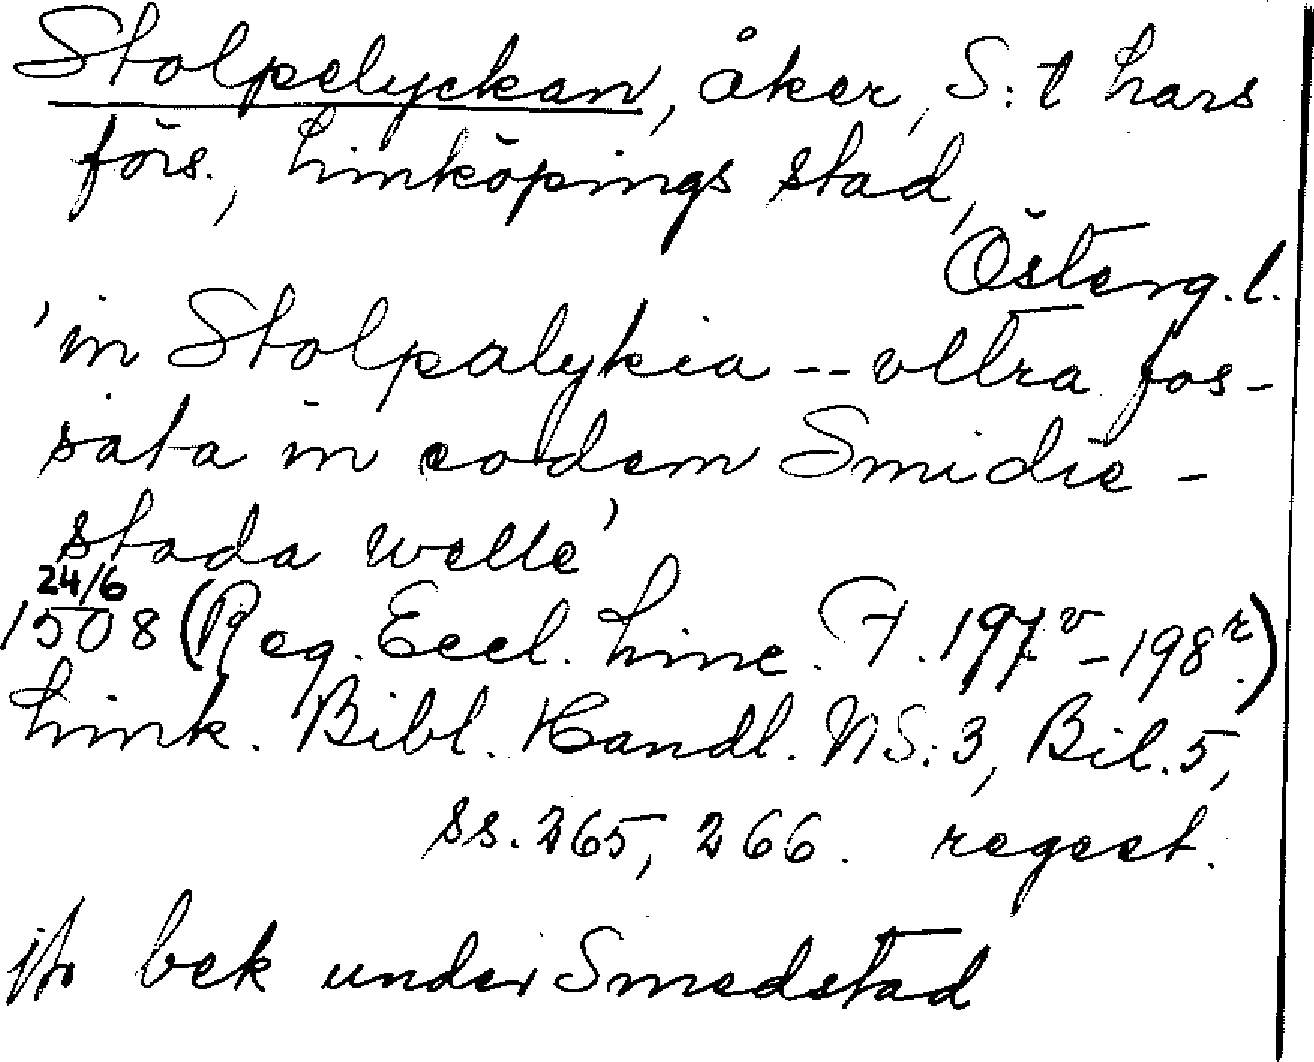 Stolpelyckan, åker, S:t Lars
förs., Linköpings stad,
Österg. l.
'in Stolpalykia -- vltra fos-
sata in eodem Smidie-
stada welle'
24/6
1508 (Reg. Eccl. Linc. F. 197v - 198r)
Link. Bibl. Handl. NS:3, Bil. 5,
ss. 265, 266. regest.
jfr bek under Smedstad